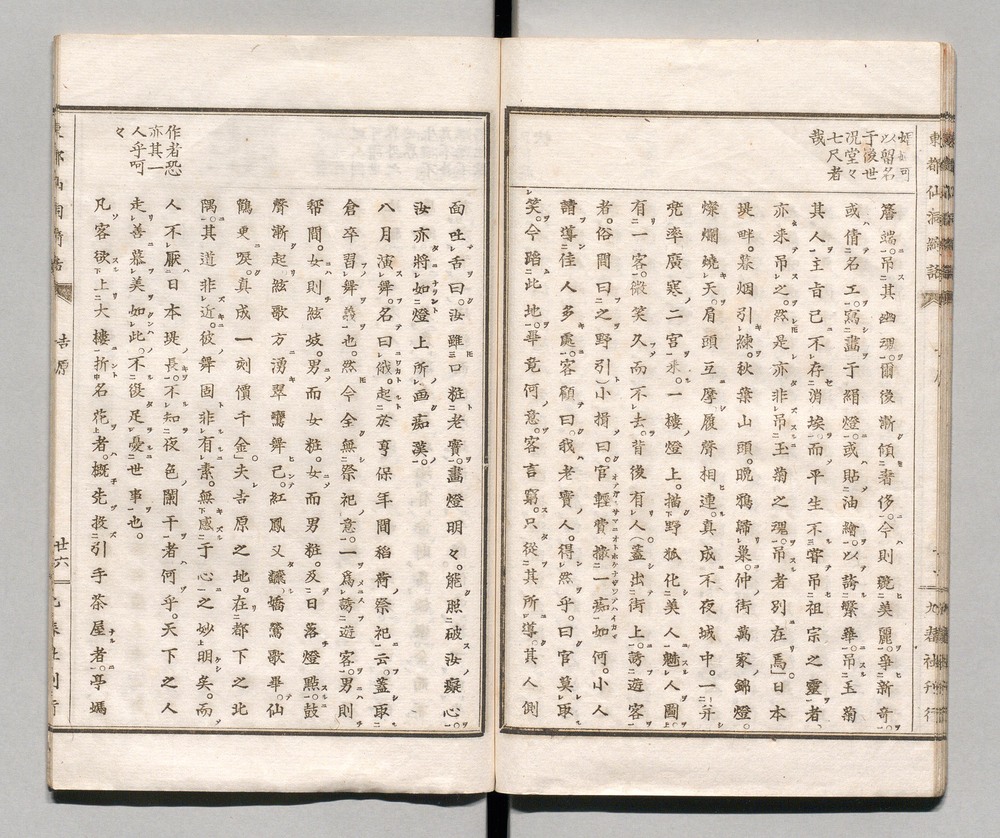 以留名
于後世
况堂々
七尺者
哉
簷端。吊其幽魂。爾後漸傾奢侈。今則競美麗。爭新奇。
或倩名工。寫畫于絹燈。或貼油繪。以誇繁華。吊玉菊
其人主旨已不存消埃。而平生不嘗吊祖宗之靈者、
亦来吊之。然是亦非吊玉菊之魂。吊者別在焉」日本
堤畔。暮烟引練。秋葉山頭。晩鴉歸巢。仲街萬家錦燈。
燦爛燒天。肩頭互摩履聲相連。真成不夜城中。一
兜率廣寒二宮来。一樓燈上。描野狐化美人魅人圖
有一客。微笑久而不去。背後有人(蓋出街上。誘遊客
者。俗間曰之野引)小揖曰。官輕費據一痴如何。小人
請導佳人多處。客顧曰。我老實人。得然乎。曰官莫取
笑。今踏此地。畢竟何意。客言窮。只從其所導。其人側
面吐舌曰。汝雖口粧老實。畫燈明々。能照破汝癡心。
汝亦將如燈上所画痴漢。
八月演舞。名曰俄。起於享保年間稻荷祭祀云。蓋取
倉卒習舞義也。然今全無祭祀意。一爲誘遊客。男則
幇間。女則絃妓。男而女粧。女而男粧。及日落燈㸃。鼓
聲漸起絃歌方湧翠鸞舞已。紅鳳又
更唳。真成一刻價千金」夫吉原之地。在都下之北
隅。其道非近。彼舞固非有素。無感于心之妙明矣。而
人不厭日本堤長。不知夜色闌干者何乎。天下之人
走善慕美如此。不復足憂世事也。
凡客欲上大樓折名花者。概先投引手茶屋者。亭媽
作者恐
亦其一
人乎呵
々
東都仙洞綺話
九春社刊行
吉原
廿六